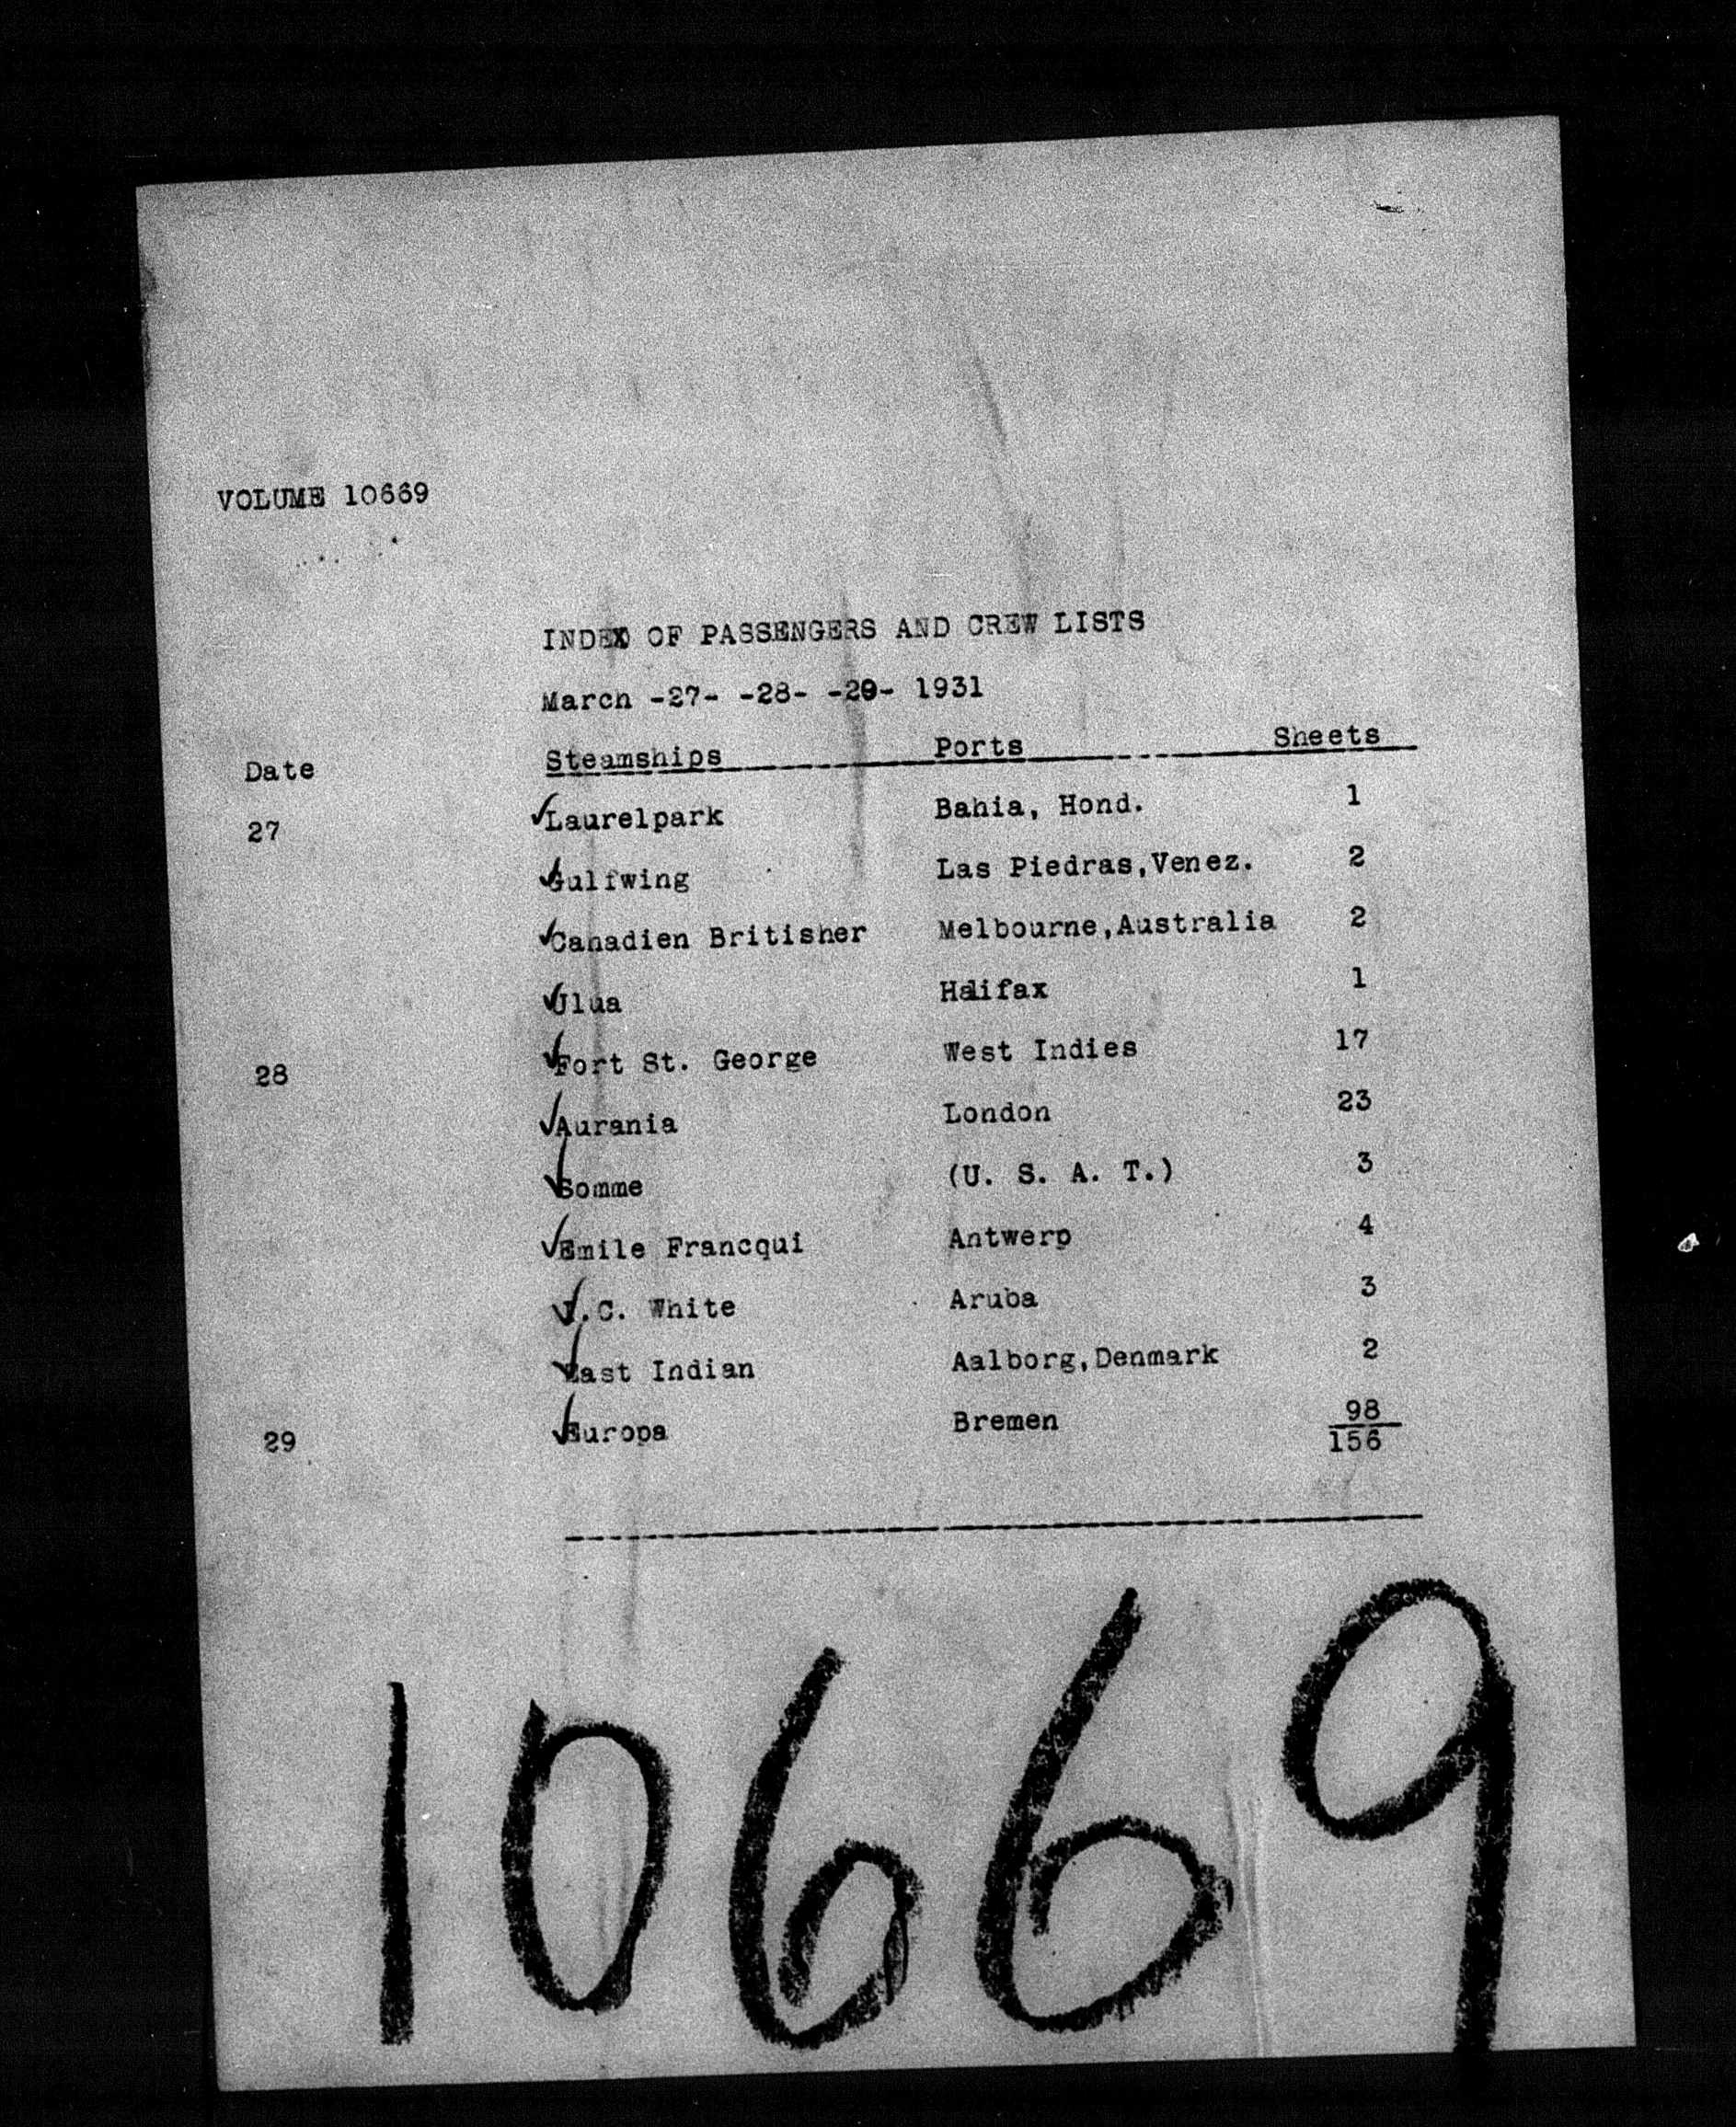 VOLUME 10669
INDEX OF PASSENGERS AND CREW LISTS
March -27- -28- -29- 1931
Date Steamships Ports Sheets
27 Laurelpark Bahia, Hond. 1
Gulfwing Las Piedras,Venez. 2
Canadien Britisher Melbourne,Australia 2
Ulua Halifax 1
28 Fort St. George West Indies 17
Aurania London 23
Somme (U. S. A. T.) 3
Emile Francqui Antwerp 4
.C. White Aruba 3
East Indian Aalborg,Denmark 2
29 Europa Bremen 98
156
10669